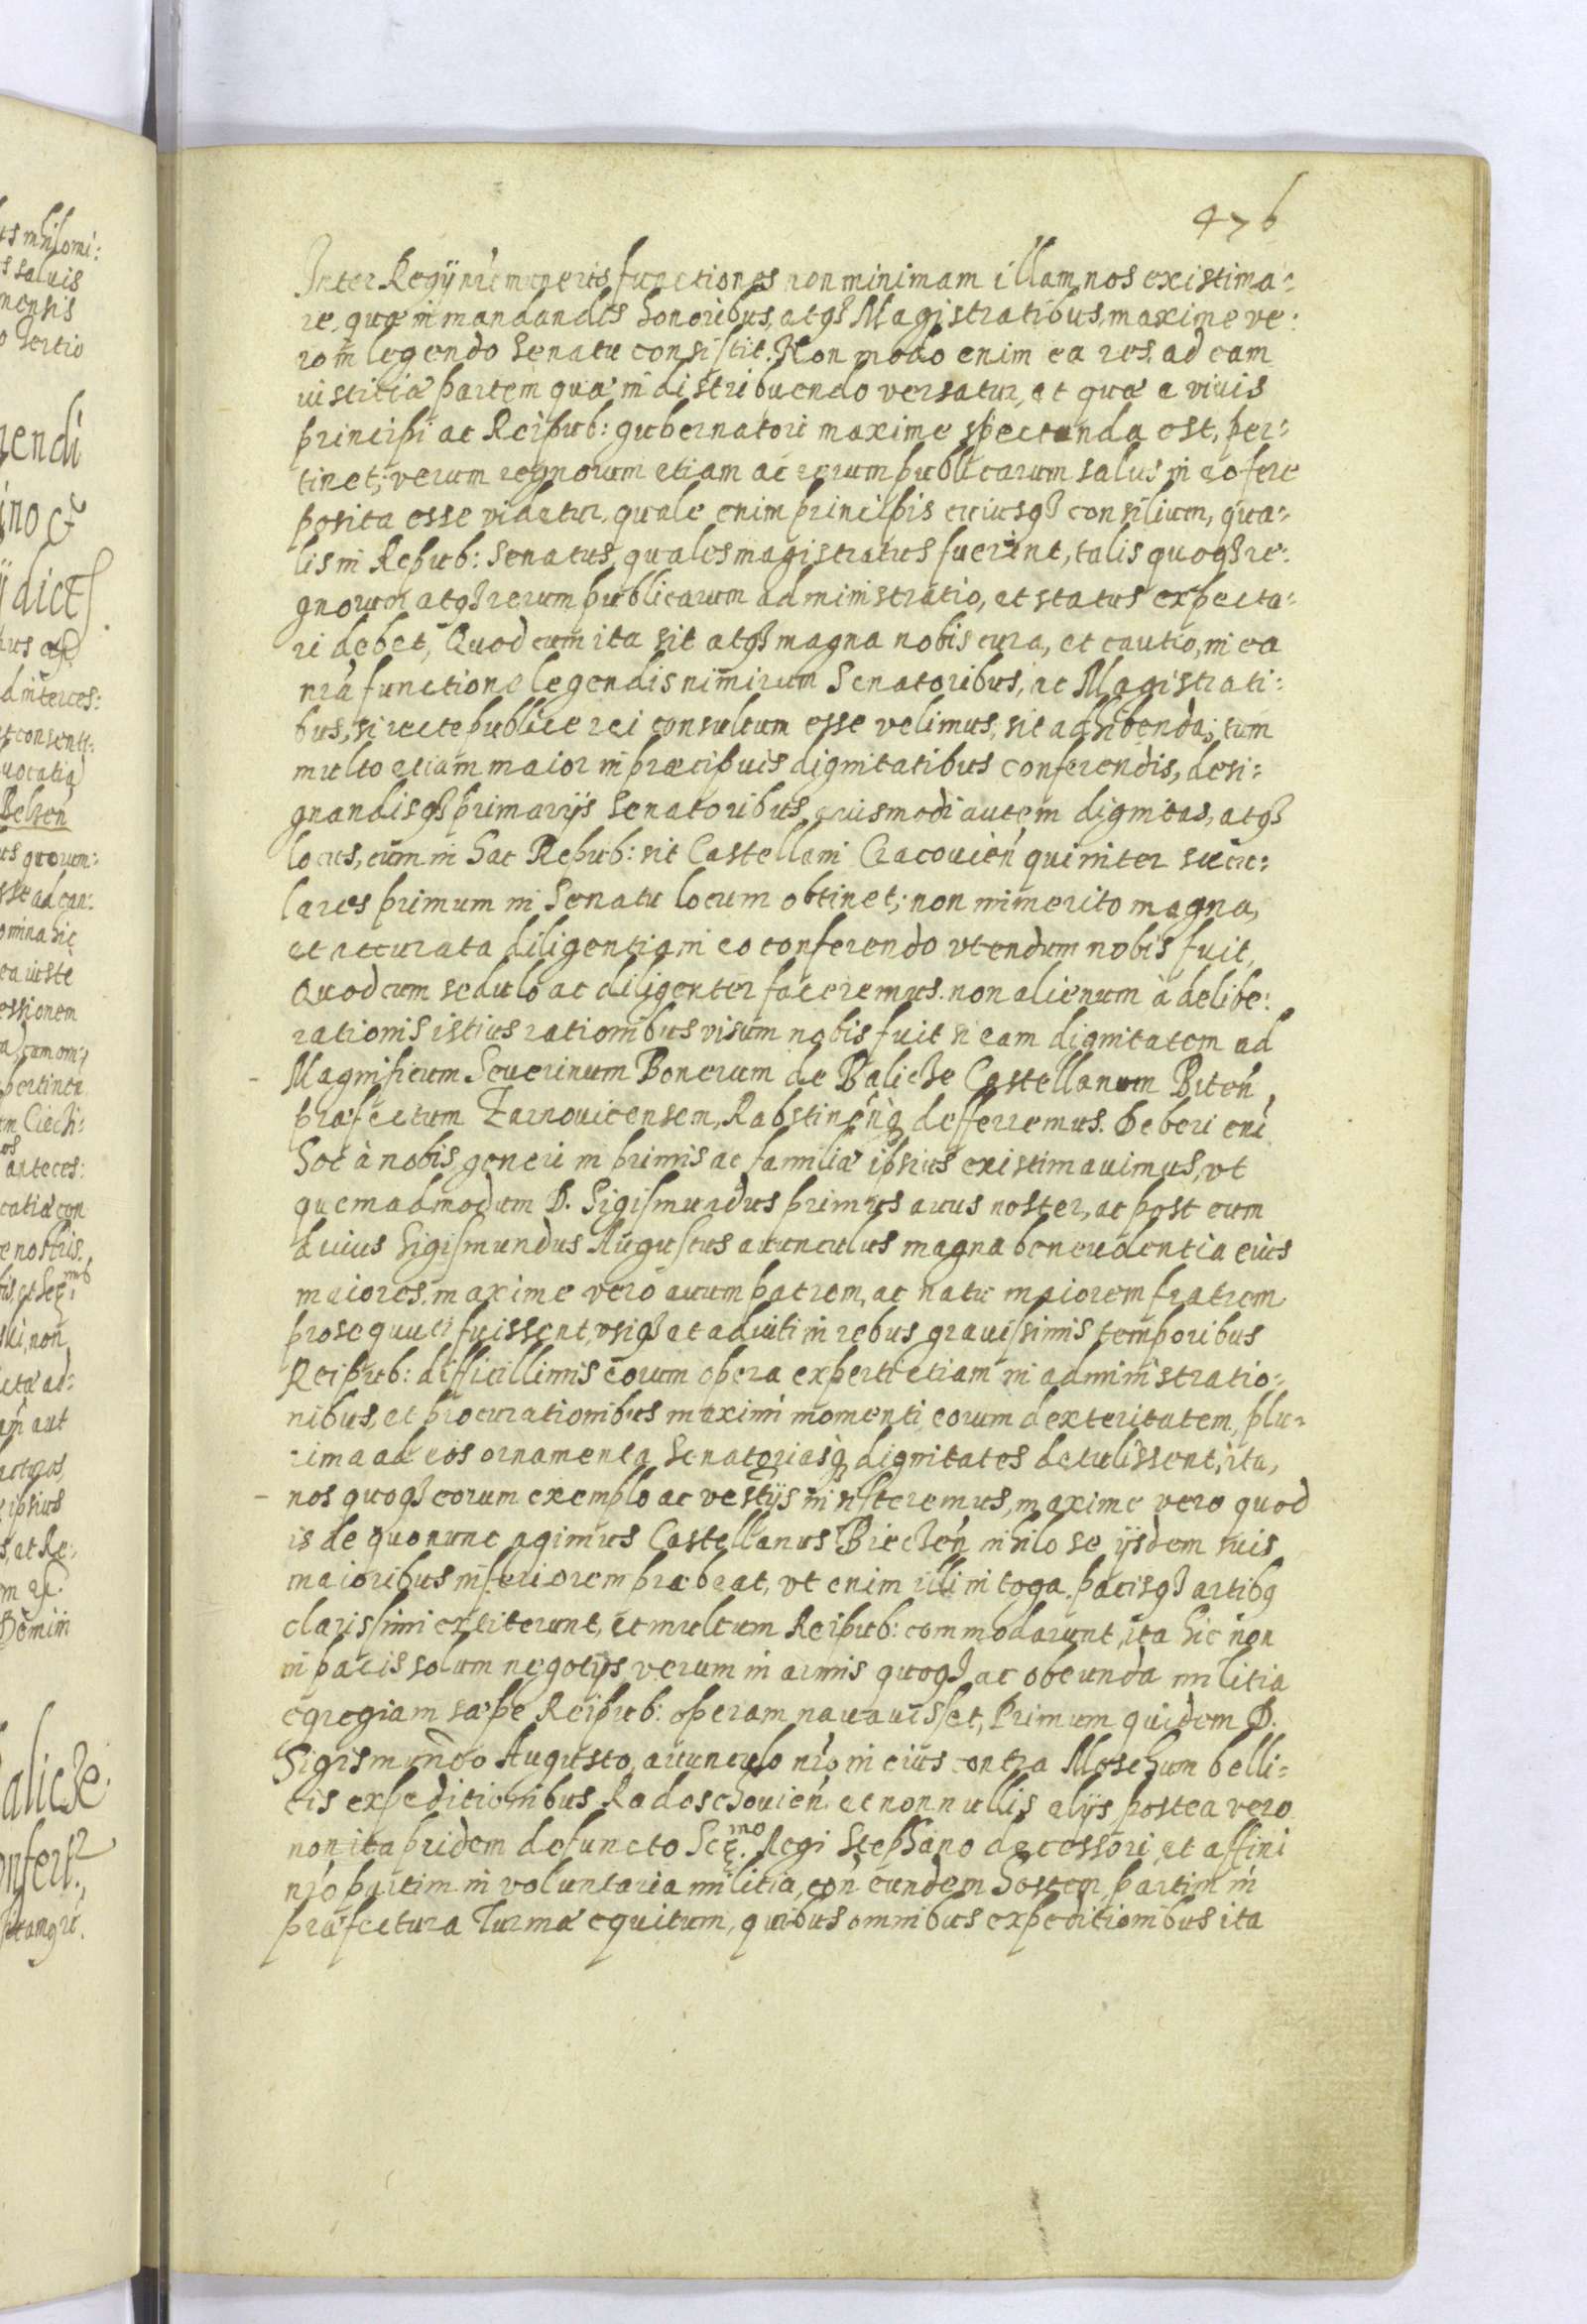 476
Inter Regij nri muneris functiones non minimam illam nos existima-
re, quæ in mandandis honoribus, atq3 Magistratibus, maxime ve:
ro in legendo Senatu consistit. Non modo enim ea res, ad eam
iustitiæ partem quæ in distribuendo versatur, et quæ a viuis
principi ac Reipub: gubernatori maxime spectanda est, per-
tinet; verum regnorum etiam ac rerum publicarum salus in eo fere
posita esse videtur, quale enim principis cuiusq3 consilium, qua-
lis in Repub: Senatus, quales magistratus fuerint, talis quoq3 re:
gnorum atq3 rerum publicarum administratio, et status expecta-
ri debet, Quod cum ita sit atq3 magna nobis cura, et cautio, in ea
nrã functione legendis nimirum Senatoribus, ac Magistrati:
bus, si recte publice rei consultum esse velimus, sit adhibenda; tum
multo etiam maior in præcipuis dignitatibus conferendis, desi-
gnandisq3 primarijs Senatoribus, eiusmodi autem dignitas, atq3
locus, cùm in hac Repub: sit Castellani Cracouień qui inter sæcu-
lares primum in Senatu locum obtinet; non immerito magna,
et accurata diligentia in eo conferendo vtendum nobis fuit,
Quod cum sedulò ac diligenter faceremus. non alienum à delibe:
rationis istius rationibus visum nobis fuit si eam dignitatem ad
Magnificum Seuerinum Bonerum de Balicze Castellanum Biteń,
præfectum Zarnouicensem, Rabstinéńq deferremus. Deberi eni
hoc à nobis generi in primis ac familiæ ipsius existimauimus, vt
quemadmodum D. Sigismundus primus auus noster, ac post eum
diuus Sigismundus Augustus auunculus magna beneuolentia eius
maiores, maxime vero auum patrem, ac natu maiorem fratrem
prosequuti fuissent, vsiq3 et adiuti in rebus grauissimis temporibus
Reipub: difficillimis eorum opera experti etiam in administratio-
nibus, et procurationibus maximi momenti eorum dexteritatem, plu-
rima ad eos ornamenta Senatoriasq dignitates detulissent, ita,
nos quoq3 eorum exemplo ac vestijs insisteremus, maxime vero quod
is de quo nunc agimus Castellanus Biecheń nihilo se ijsdem suis
maioribus inferiorem præbeat, vt enim illi in toga pacisq3 artibq
clarissimi extiterunt, et multum Reipub: commodarunt, ita hic non
in pacis solum negotijs verum in armis quoq3 ac obeunda militia
egregiam sæpe Reipub: operam nauauisset, Primum quidem D.
Sigismundo Augusto, auunculo nrõ in eius contra Moschum belli-
cis expeditionibus Radoschouień et nonnullis alijs postea vero
non ita pridem defuncto Ser.mo Regi Stephano decessori et affini
nrõ partim in voluntaria militia, con eundem hostem, partim in
præfectura Turmæ equitum, quibus omnibus expeditionibus ita